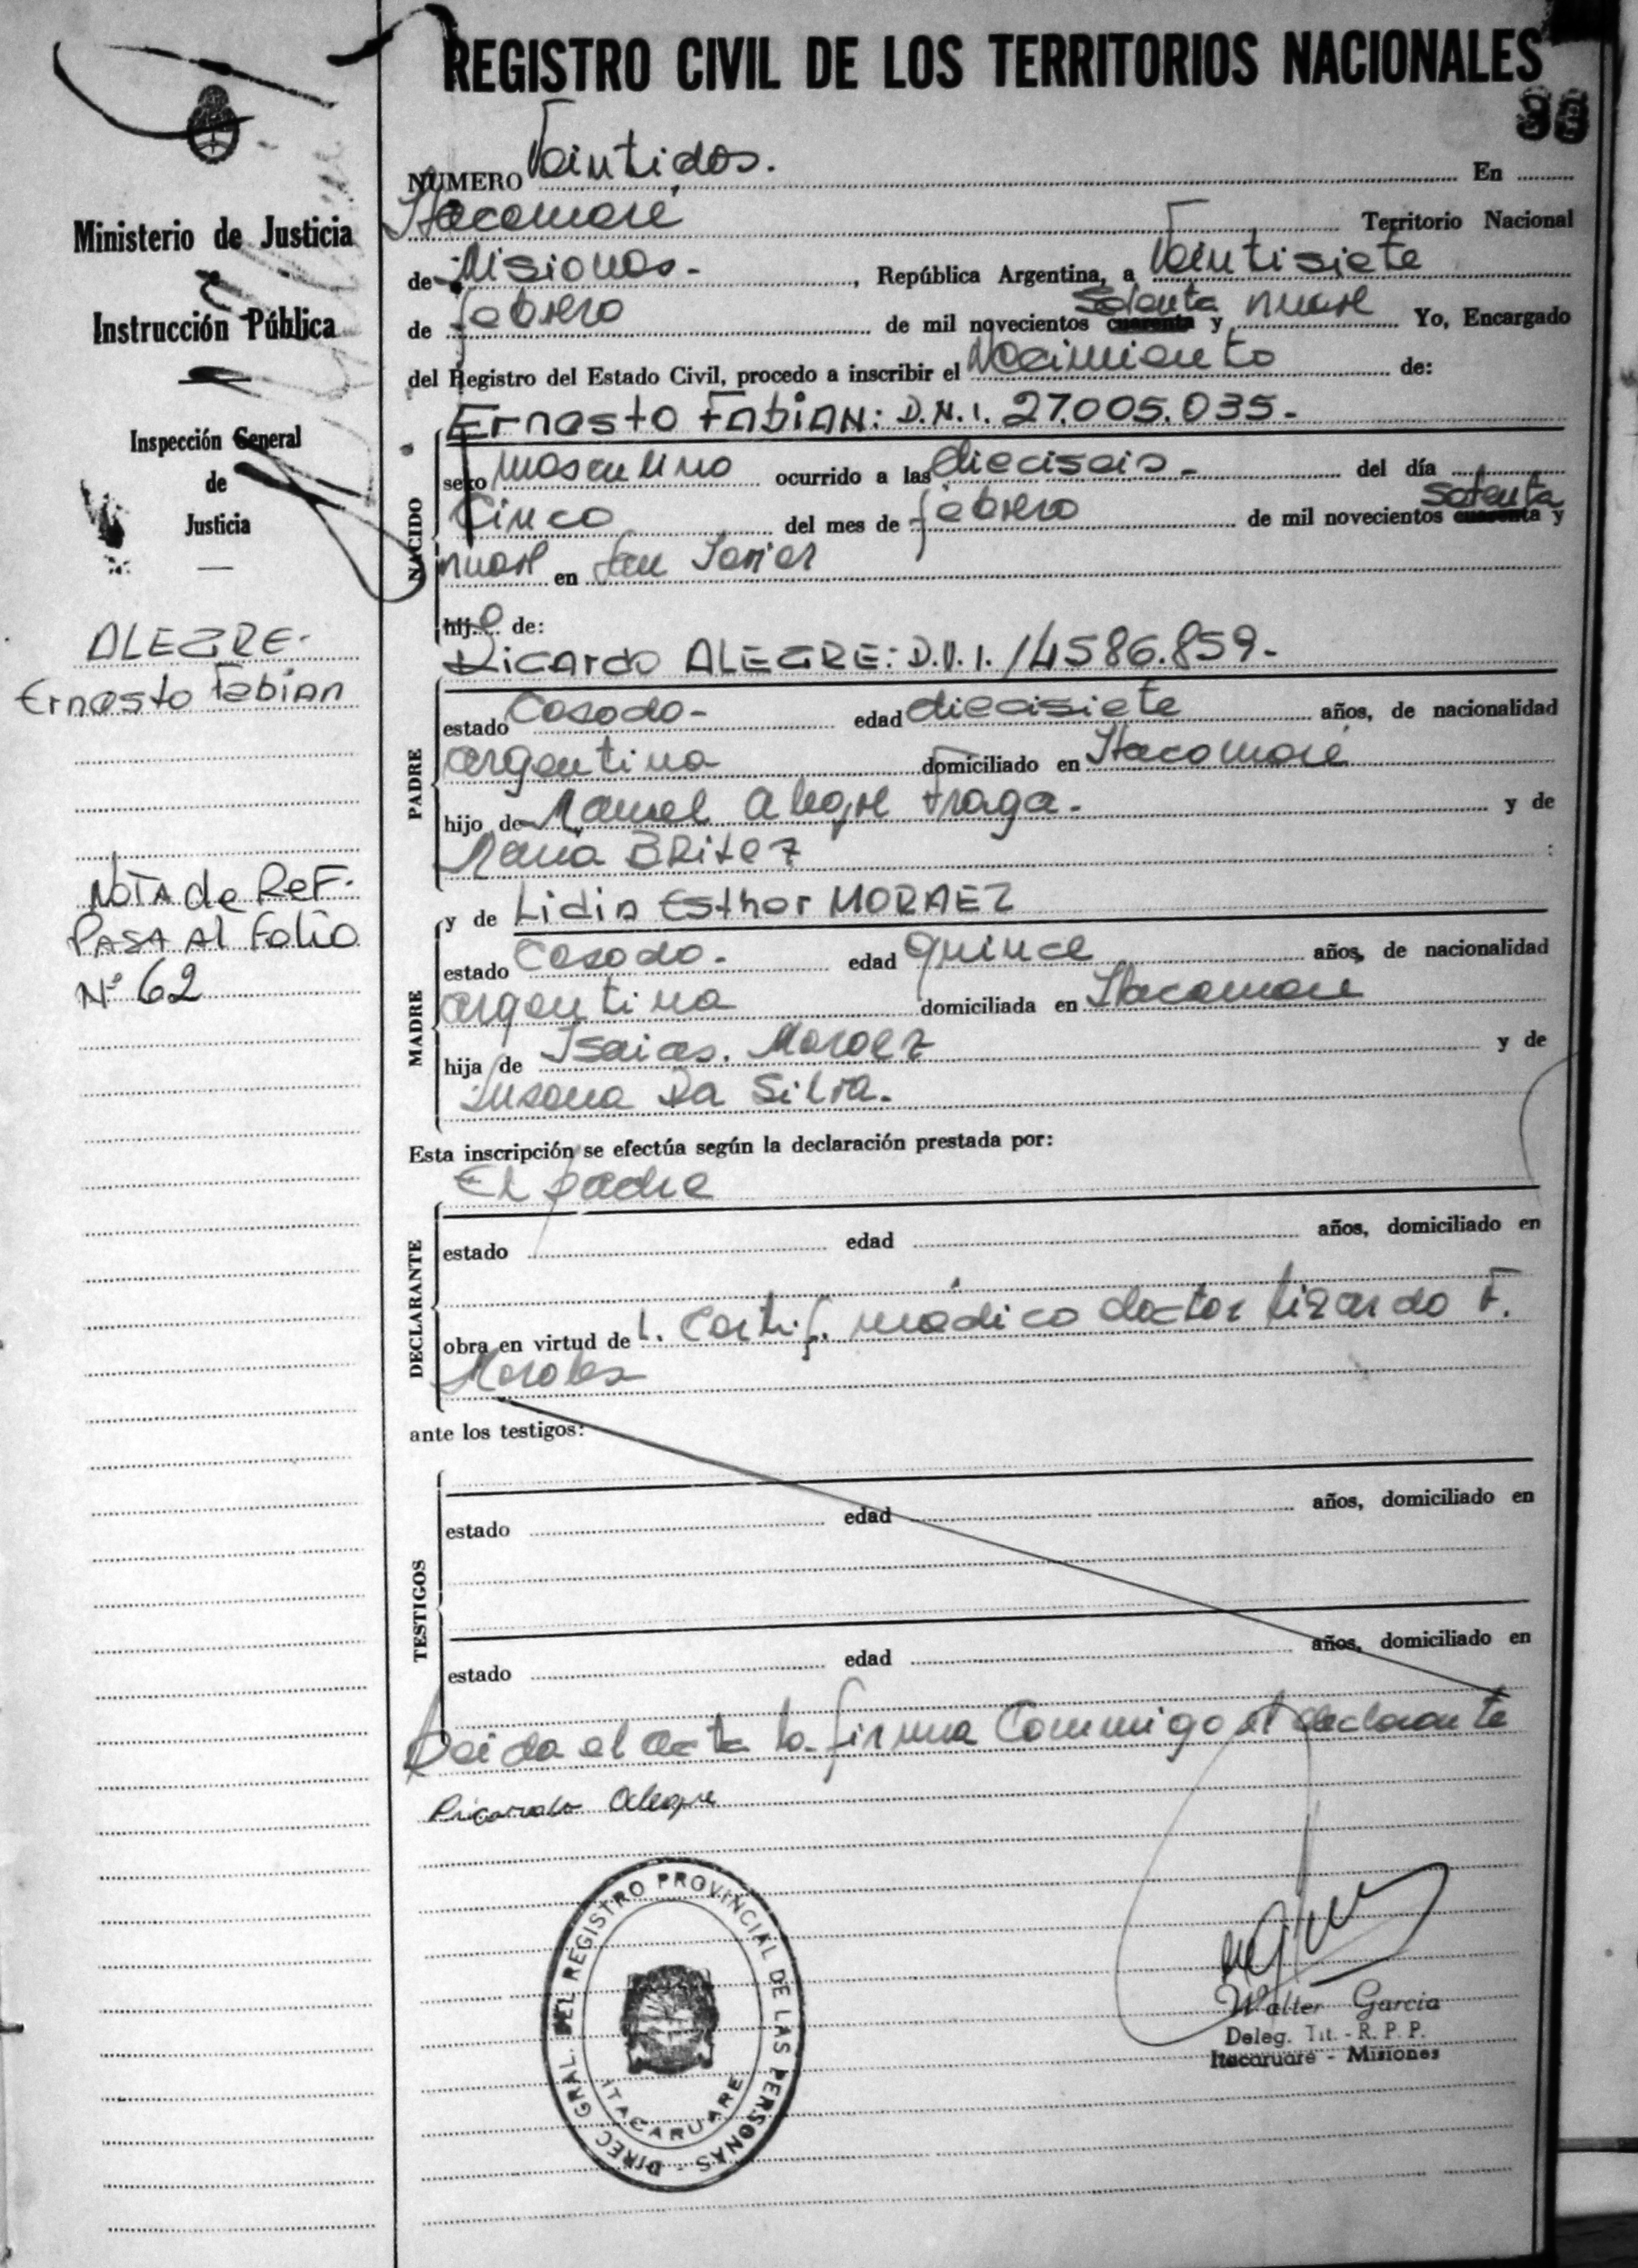 REGISTRO CIVIL DE LOS TERRITORIOS NACIONALES
NUMERO Veintidos. En
Itacaruaré Territorio Nacional
de Misiones.-, República Argentina, a Veintisiete
de febrero de mil novecientos cuarenta setenta y nueve Yo, Encargado
del Registro del Estado Civil, procedo a inscribir el Nacimiento de:
Ernesto FABIAN: D.N.I. 27.005.035.-
NACIDO
sexo masculino ocurrido a las dieciseis.- del día
Cinco del mes de febrero de mil novecientos cuarenta setenta y
nueve en San Javier
hijo de:
Ricardo ALEGRE: D.N.I. 14586.859.-
PADRE
estado Casado- edad diecisiete años, de nacionalidad
argentina domiciliado en Itacaruaré
hijo de Manuel Alegre Fraga.- y de
Maria BRitez
y de Lidia Esther MORAEZ
MADRE
estado Casada.- edad quince años, de nacionalidad
argentina domiciliada en Itacaruare
hija de Isaias. Moraez y de
Susana Da Silva.-
Esta inscripción se efectúa según la declaración prestada por:
El padre
DECLARANTE
estado edad años, domiciliado en
obra en virtud de l. Certif. médico doctor Lizardo F.
Morales
ante los testigos:
TESTIGOS
estado edad años, domiciliado en
estado edad años, domiciliado en
Leida el acta la firma Conmigo el declarante
Ricardo Alegre
DIREC. GRAL. DEL REGISTRO PROVINCIAL DE LAS PERSONAS -
ITACARUARE
Walter Garcia
Deleg. Tit. - R. P. P.
Itacaruaré - Misiones
Ministerio de Justicia
e
Instrucción Pública
Inspección General
de
Justicia
ALEGRE.
Ernesto Fabian
NOTA de ReF.
PASA Al Folio
Nº 62